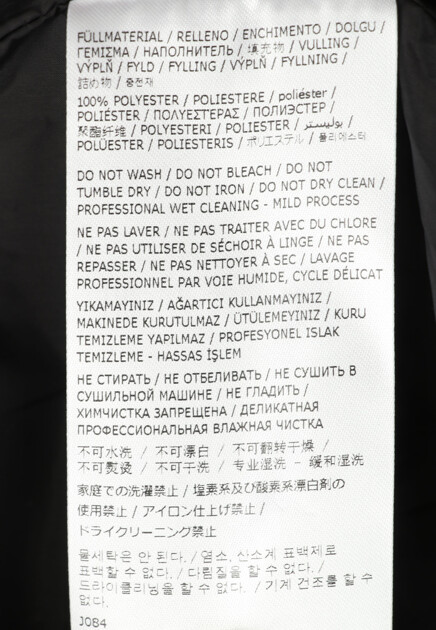 FÜLLMATERIAL / RELLENO / ENCHIMENTO / DOLGU /
ΓΕΜΙΣΜΑ / НАПОЛНИТЕЛЬ / 填充物 / VULLING /
VÝPLŇ / FYLD / FYLLING / VÝPLŇ / FYLLNING /
詰め物 / 충전재
100% POLYESTER / POLIESTERE / poliéster /
POLIÉSTER / ΠΟΛΥΕΣΤΕΡΑΣ / ПОЛИЭСТЕР /
聚酯纤维 / POLYESTERI / POLIESTER / بوليستر /
POLÜESTER / POLIESTERIS / ポリエステル / 폴리에스터
DO NOT WASH / DO NOT BLEACH / DO NOT
TUMBLE DRY / DO NOT IRON / DO NOT DRY CLEAN /
PROFESSIONAL WET CLEANING - MILD PROCESS
NE PAS LAVER / NE PAS TRAITER AVEC DU CHLORE
/ NE PAS UTILISER DE SÉCHOIR À LINGE / NE PAS
REPASSER / NE PAS NETTOYER À SEC / LAVAGE
PROFESSIONNEL PAR VOIE HUMIDE, CYCLE DÉLICAT
YIKAMAYINIZ / AĞARTICI KULLANMAYINIZ /
MAKINEDE KURUTULMAZ / ÜTÜLEMEYINIZ / KURU
TEMIZLEME YAPILMAZ / PROFESYONEL ISLAK
TEMIZLEME - HASSAS İŞLEM
НЕ СТИРАТЬ / НЕ ОТБЕЛИВАТЬ / НЕ СУШИТЬ В
СУШИЛЬНОЙ МАШИНЕ / НЕ ГЛАДИТЬ /
ХИМЧИСТКА ЗАПРЕЩЕНА / ДЕЛИКАТНАЯ
ПРОФЕССИОНАЛЬНАЯ ВЛАЖНАЯ ЧИСТКА
不可水洗 / 不可漂白 / 不可翻转干燥 /
不可熨烫 / 不可干洗 / 专业湿洗 - 缓和湿洗
家庭での洗濯禁止 / 塩素系及び酸素系漂白剤の
使用禁止 / アイロン仕上げ禁止 /
ドライクリーニング禁止
물세탁은 안 된다. / 염소, 산소계 표백제로
표백할 수 없다. / 다림질을 할 수 없다. /
드라이클리닝을 할 수 없다. / 기계 건조를 할 수
없다.
J084